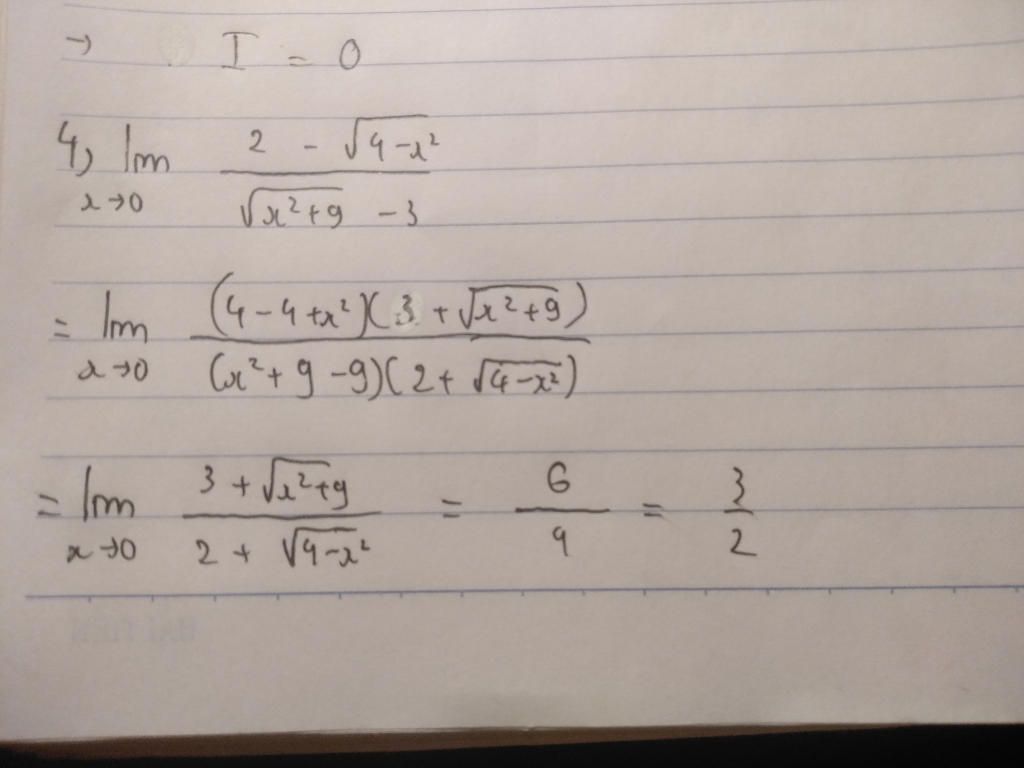 → I = 0
4, lim x→0 (2 - √(4-x²)) / (√(x²+9) - 3)
= lim x→0 ((4-4+x²)(3+√(x²+9))) / ((x²+9-9)(2+√(4-x²)))
= lim x→0 (3+√(x²+9)) / (2+√(4-x²)) = 6/4 = 3/2